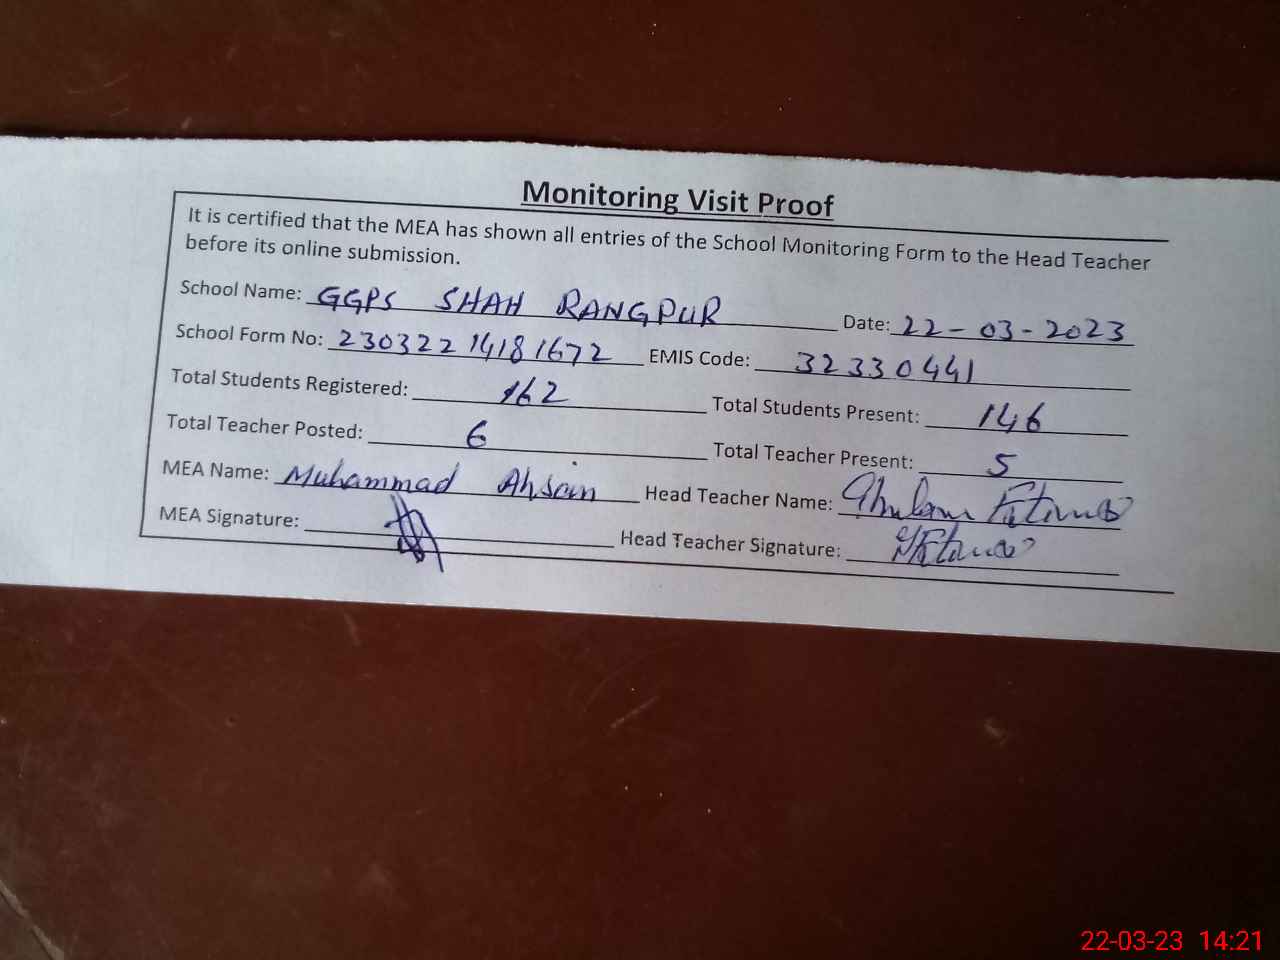 Monitoring Visit Proof
It is certified that the MEA has shown all entries of the School Monitoring Form to the Head Teacher
before its online submission.
School Name: GGPS SHAH RANGPUR Date: 22-03-2023
School Form No: 23032214181672 EMIS Code: 32330441
Total Students Registered: 162 Total Students Present: 146
Total Teacher Posted: 6 Total Teacher Present: 5
MEA Name: Muhammad Ahsan Head Teacher Name: Ghulam Fatima
MEA Signature: Head Teacher Signature:
22-03-23 14:21